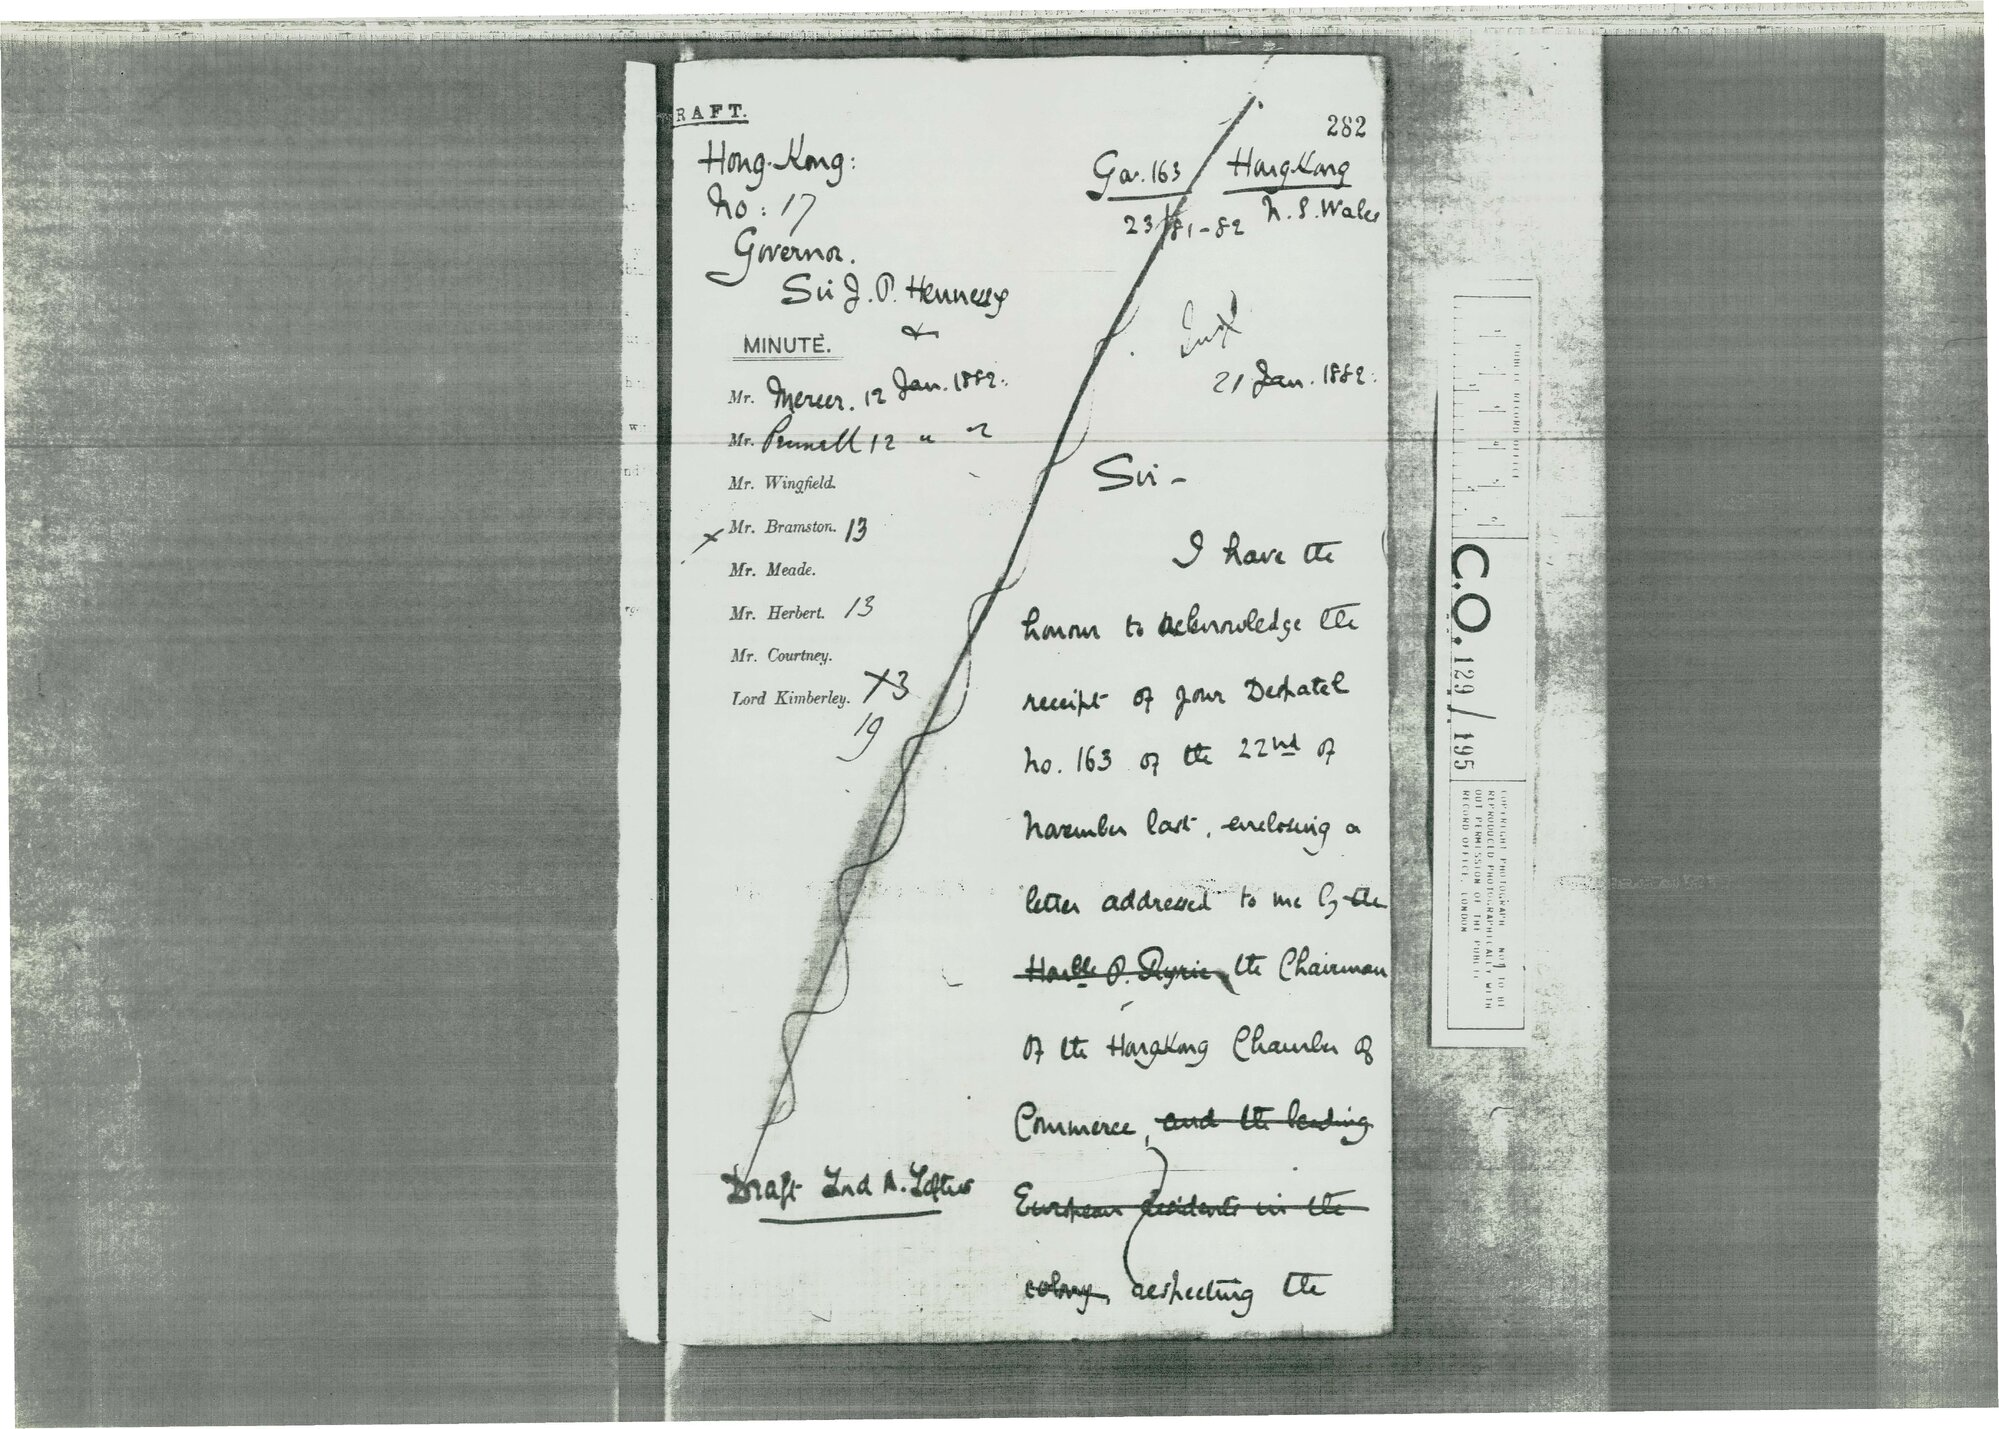 RAFT.
Hong Kong:
No: 17
Governor.
Sir J. P. Hennessy
&
MINUTE.
Mr. Mercer. 12 Jan. 1882.
Mr. Pennell 12 "
Mr. Wingfield.
Mr. Bramston. 13
Mr. Meade.
Mr. Herbert. 13
Mr. Courtney.
Lord Kimberley. 
19
Draft Lord A. Loftus
282
Gov. 163 Hong Kong
23 /81-82 N. S. Wales
21 Jan. 1882.
Sir -
I have the
honour to acknowledge the
receipt of your Despatch
No. 163 of the 22nd of
November last, enclosing a
letter addressed to me by the
Honble P. Ryrie the Chairman
of the Hong Kong Chamber of
Commerce, and the leading
European residents in the
colony, respecting the
PUBLIC RECORD OFFICE
C.O. 129 / 195
COPYRIGHT PHOTOGRAPH - NOT TO BE
REPRODUCED PHOTOGRAPHICALLY WITH
OUT PERMISSION OF THE PUBLIC
RECORD OFFICE, LONDON